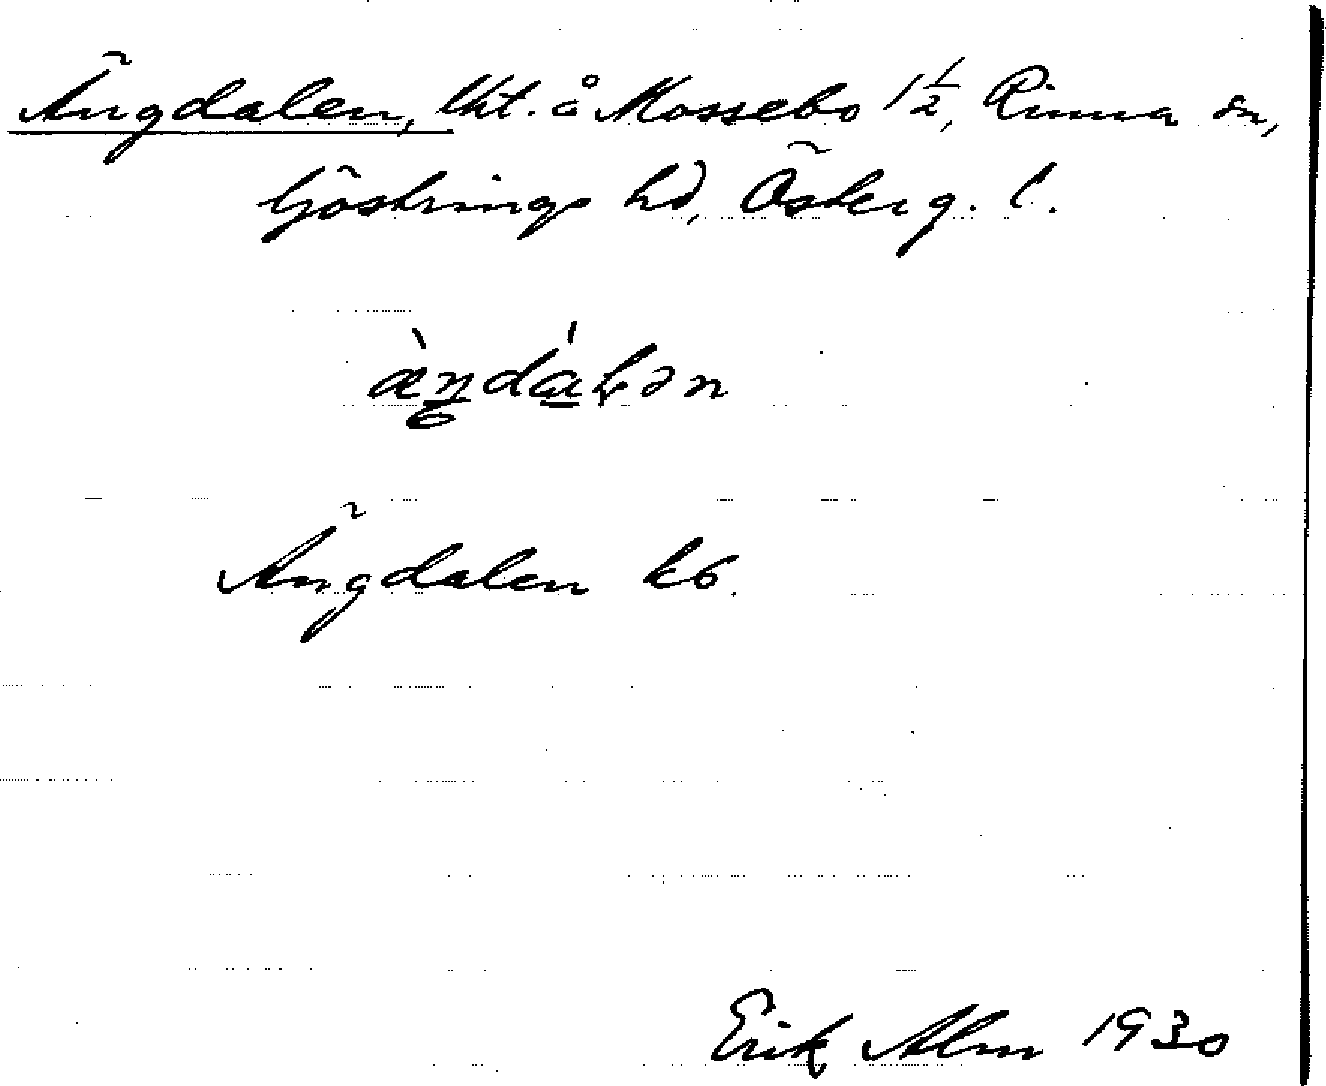 Ängdalen, lht. å Mossebo 1 1/2, Rinna sn,
Göstrings hd, Österg. l.
æ̀ŋdáɫən
Ängdalen kb.
Erik Alm 1930